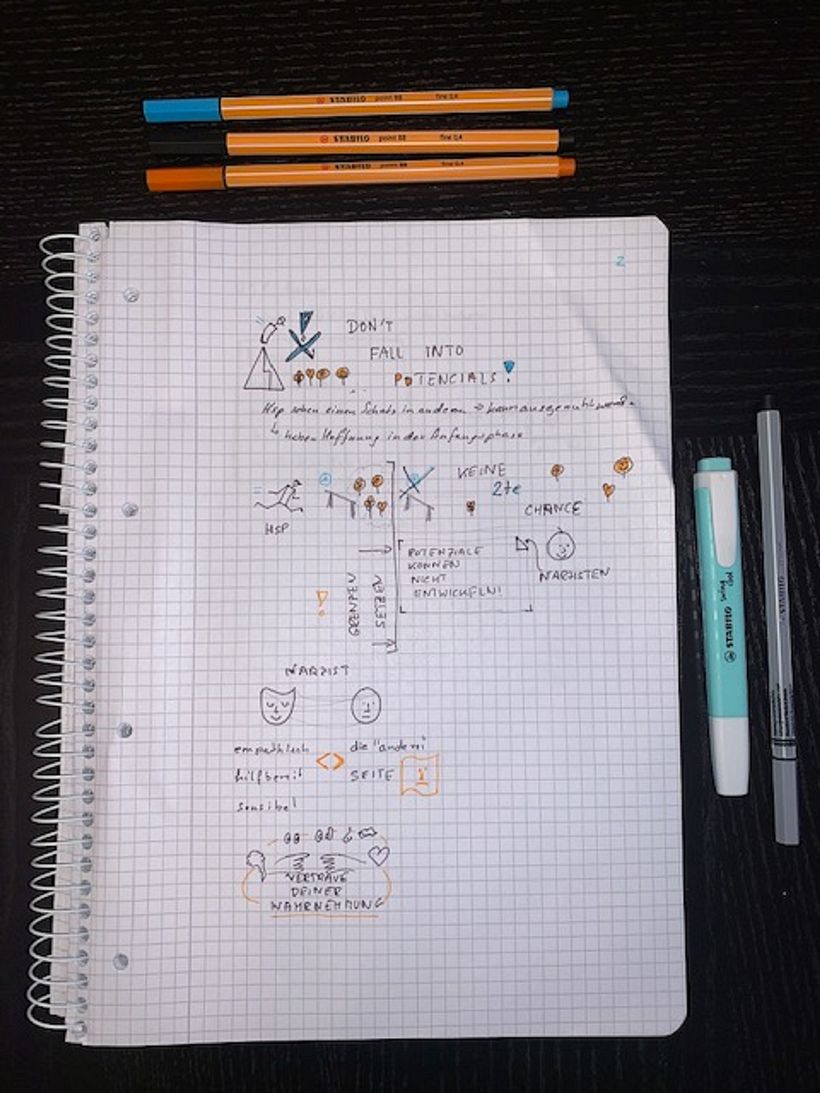 STABILO point 88 fine 0,4
STABILO point 88 fine 0,4
STABILO point 88 fine 0,4
2
DON'T
FALL INTO
POTENCIALS!
Hsp sehen einen Schatz in anderen → kann ausgenutzt werden
↳ haben Hoffnung in der Anfangsphase
KEINE
2te
CHANCE
HSP
→
POTENZIALE
KÖNNEN
NICHT
ENTWICKELN!
NARZISTEN
!
GRENZEN
SETZEN
NARZIST
empathisch
hilfbereit
sensibel
<>
die "andere"
SEITE
VERTRAUE
DEINER
WAHRNEHMUNG
STABILO swing cool